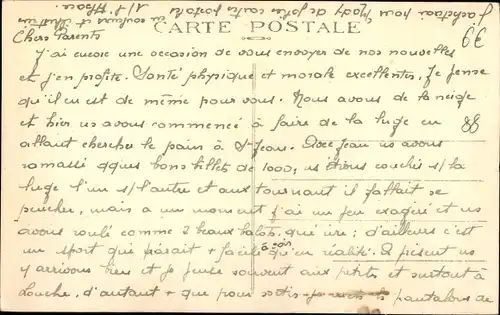 CARTE POSTALE
Chers Parents
J'ai encore une occasion de vous envoyer de nos nouvelles
et j'en profite. Santé physique et morale excellentes. Je pense
qu'il en est de même pour vous. Nous avons de la neige
et hier ns avons commencé à faire de la luge en
allant chercher le pain à St Jean. Avec Jean ns avons
ramassé qques bons billets de 1000, ns étions couchés s/ la
luge l'un s/ l'autre et aux tournant il fallait se
pencher, mais à un moment j'ai un peu exagéré et ns
avons roulé comme 2 beaux ; d'ailleurs c'est
un sport qui parait + facile à voir qu'en réalité. A présent ns
y arrivons bien et je pense souvent aux petits et surtout à
Louche, d'autant + que pour sortis je mets le pantalons de